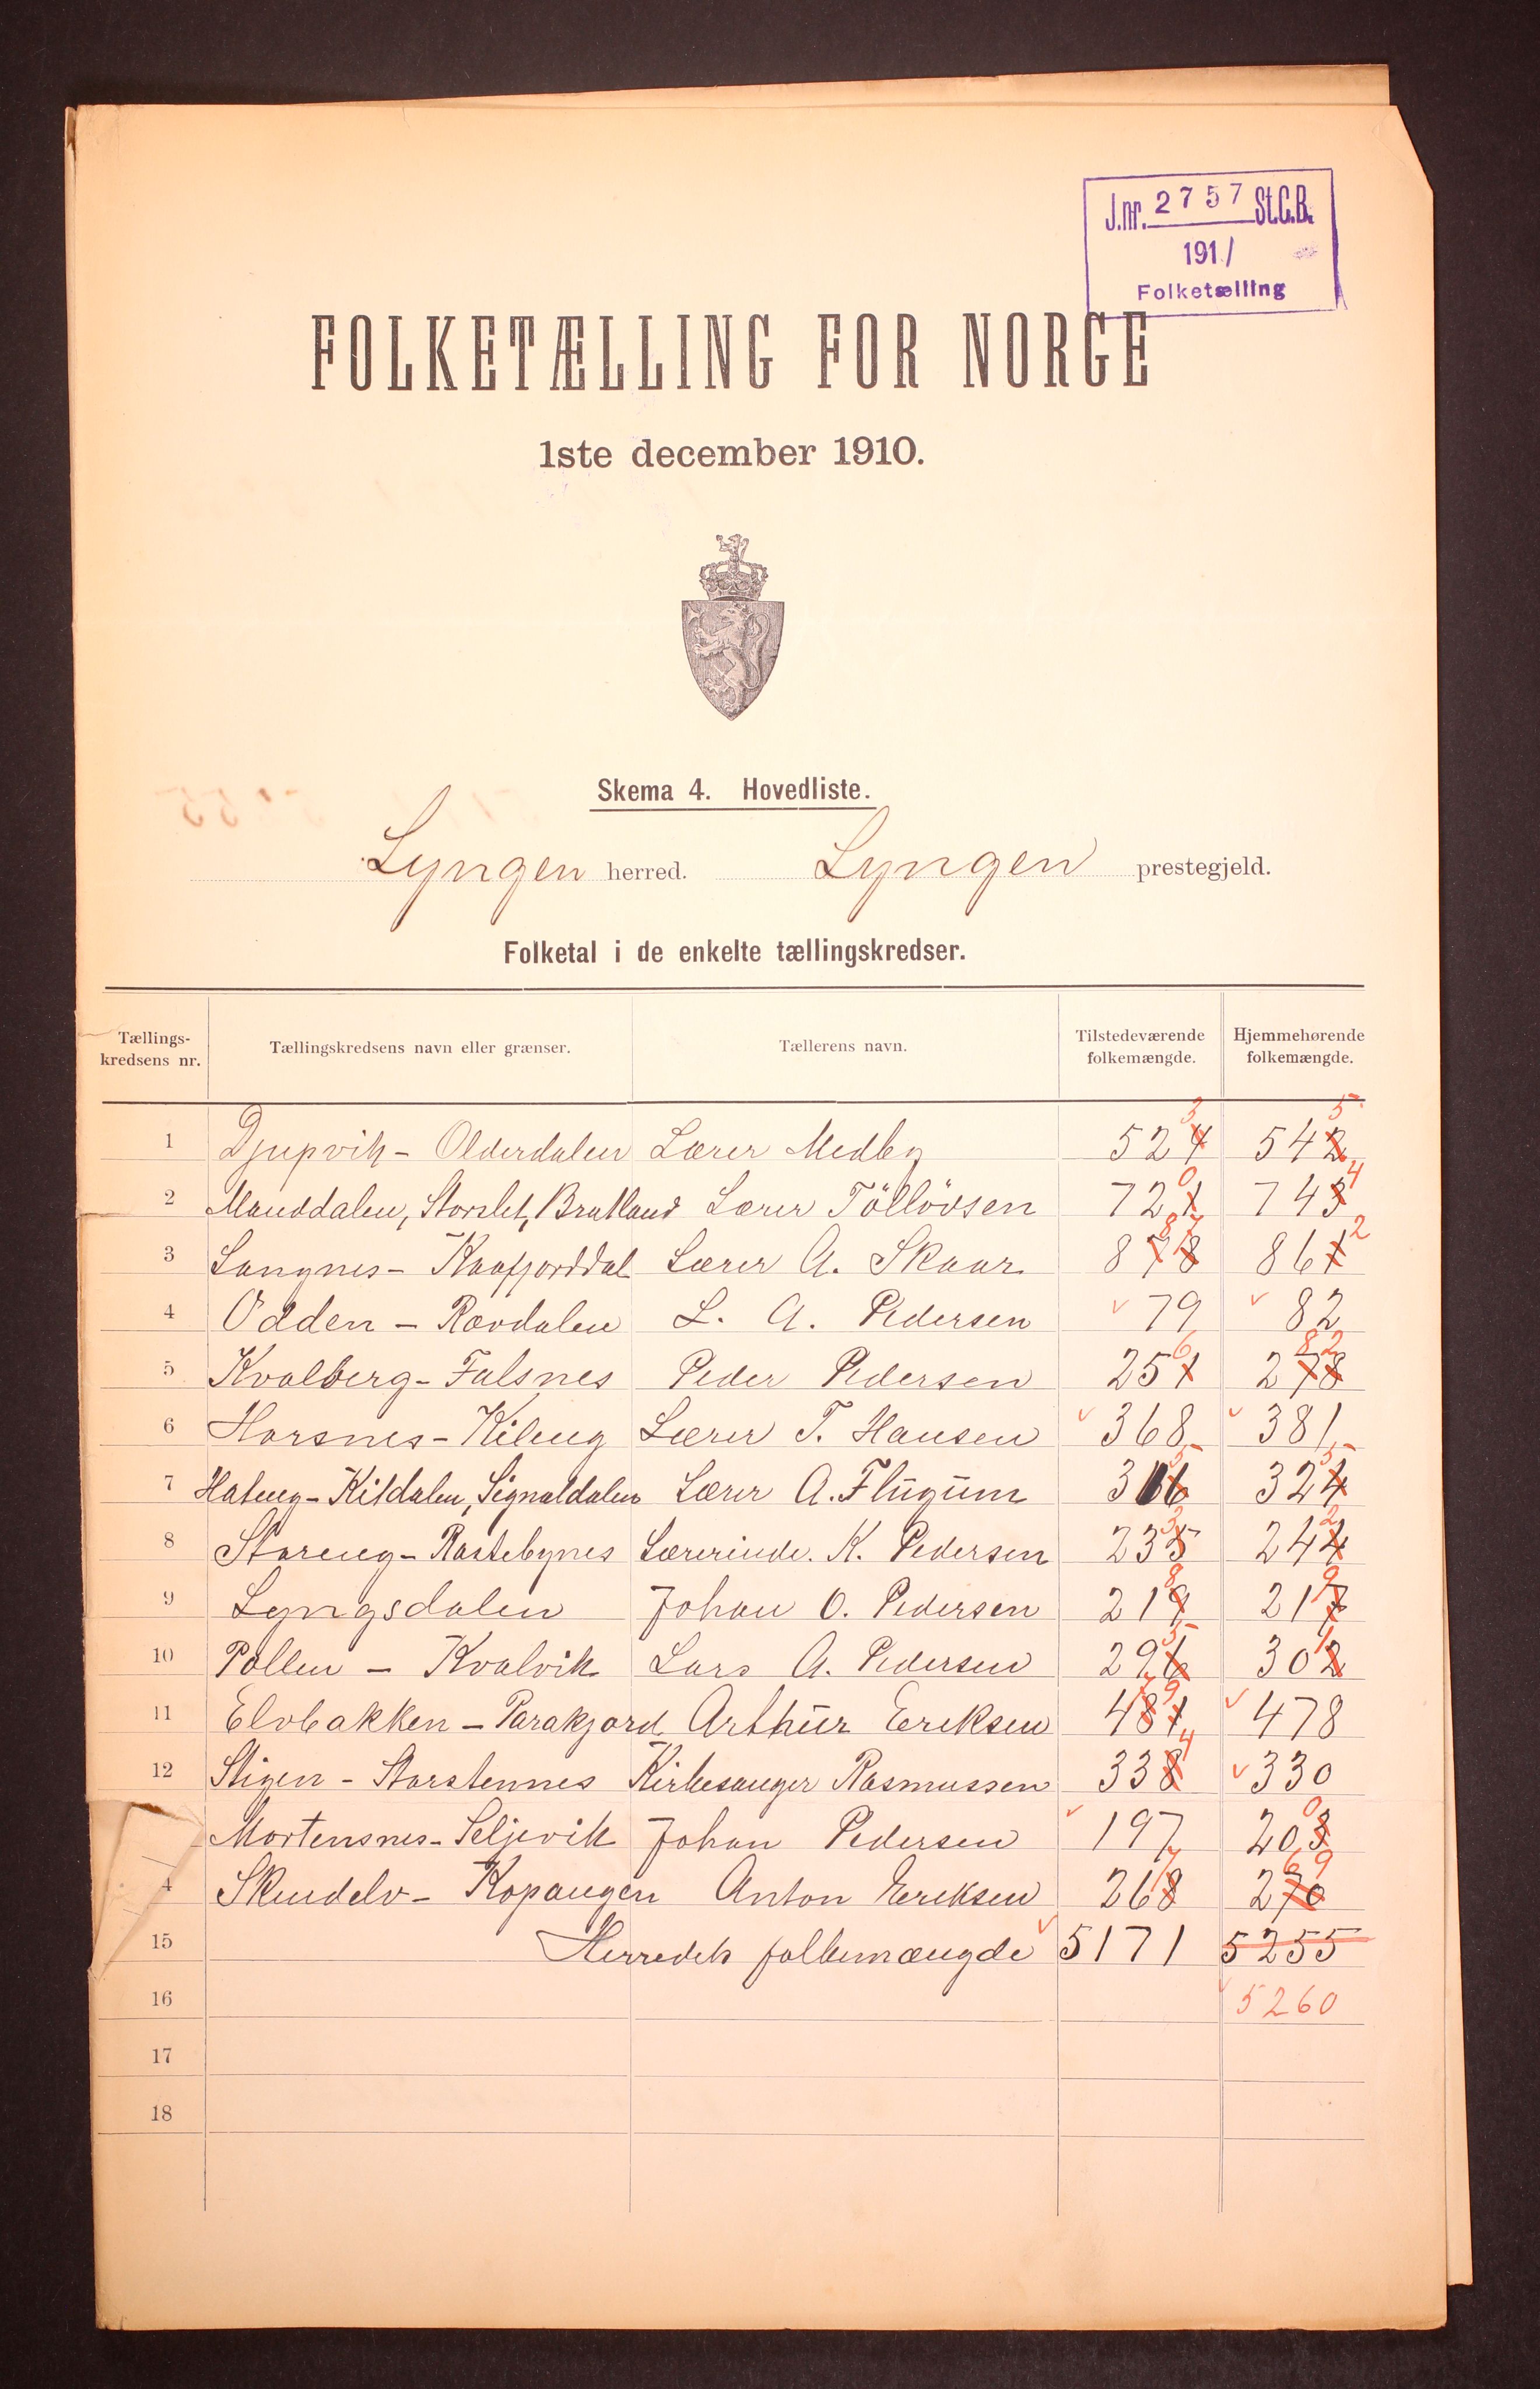 J.nr. 2757 St.C.B.
1911
Folketælling
FOLKETÆLLING FOR NORGE
1ste december 1910.
Skema 4. Hovedliste.
Lyngen herred. Lyngen prestegjeld.
Folketal i de enkelte tællingskredser.
Tællings-kredsens nr. Tællingskredsens navn eller grænser. Tællerens navn. Tilstedeværende folkemængde. Hjemmehørende folkemængde.
1 Djupvik - Olderdalen Lærer Medby 524 3 542 5
2 Manddalen, Storslet, Bratland Lærer Töllövsen 721 0 743 4
3 Langnes - Kaafjorddal Lærer A. Skaar 878 87 861 2
4 Odden - Rovdalen L. A. Pedersen 79 82
5 Kvalberg - Falsnes Peder Pedersen 251 6 278 82
6 Horsnes - Kileng Lærer T. Hansen 368 381
7 Hateng - Kitdalen, Signaldalen Lærer A. Flugum 316 5 324 5
8 Storeng - Rastebynes Lærerinde. K. Pedersen 235 3 244 2
9 Lyngsdalen Johan O. Pedersen 219 8 217 9
10 Pollen - Kvalvik Lars A. Pedersen 296 5 302 1
11 Elvbakken - Parakjord Arthur Eriksen 481 79 478
12 Stigen - Storstennes Kirkesanger Rasmussen 338 4 330
Mortensnes - Seljevik Johan Pedersen 197 203 0
4 Skudelv - Kopangen Anton Eriksen 268 7 270 69
15 Herredets folkemængde 5171 5255
16 5260
17
18